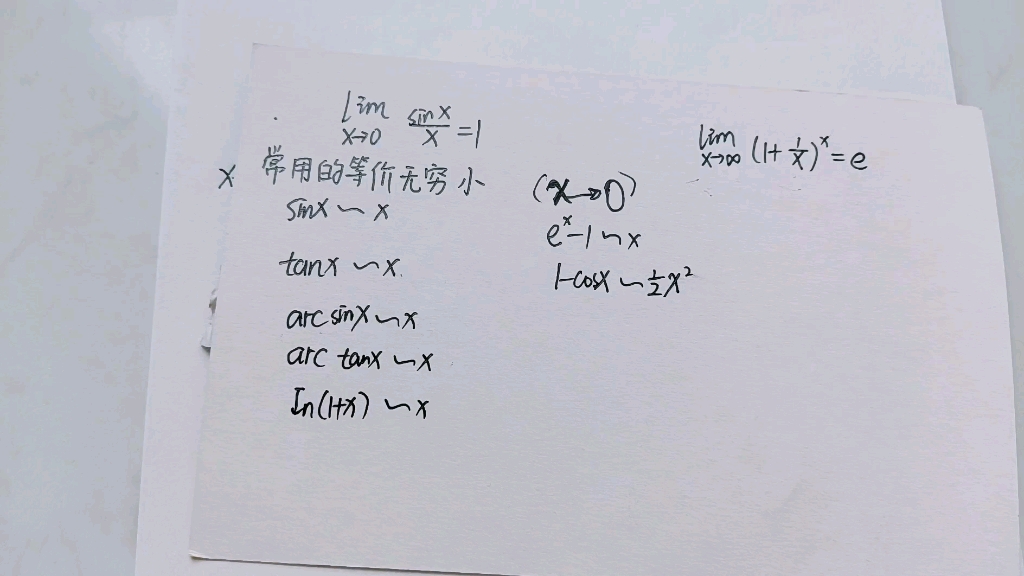 lim x→0 sinx/x =1
lim x→∞ (1+1/x)^x=e
x 常用的等价无穷小 (x→0)
sinx ~ x
e^x-1 ~ x
tanx ~ x.
1-cosx ~ 1/2 x²
arcsinx ~ x
arc tanx ~ x
In(1+x) ~ x